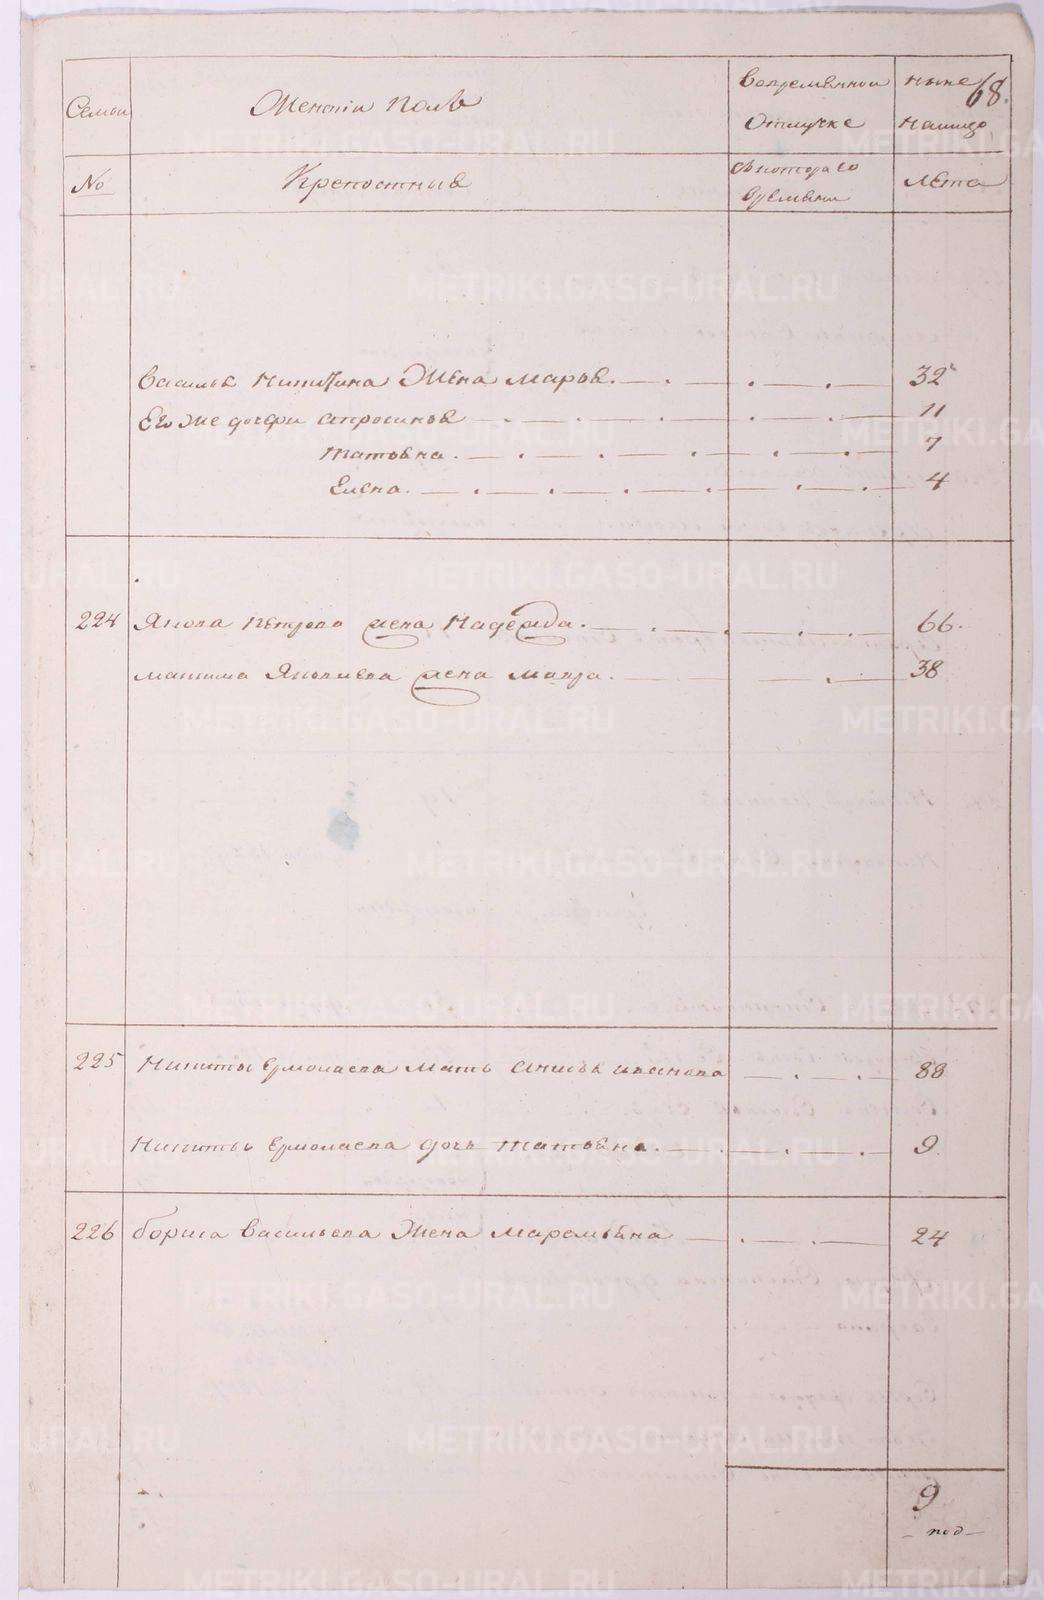 68.
Семьи Женскiй полъ Вовременной ныне
Отлучке налицо
№ Крепостныя Съкотораго лета
времени
Василья Никитина Жена Марья. 32
Его же дочери Апросинья 11
Татьяна. 7
Елена. 4
224 Якова Петрова жена Надежда. 66.
Максима Яковлева жена Мавра. 38
225 Никиты Ермолаева Мать Анисья Иванова 88
Никиты Ермолаева дочь Татьяна. 9
226 Бориса Васильева Жена Маремьяна 24
9
METRIKI.GASO-URAL.RU